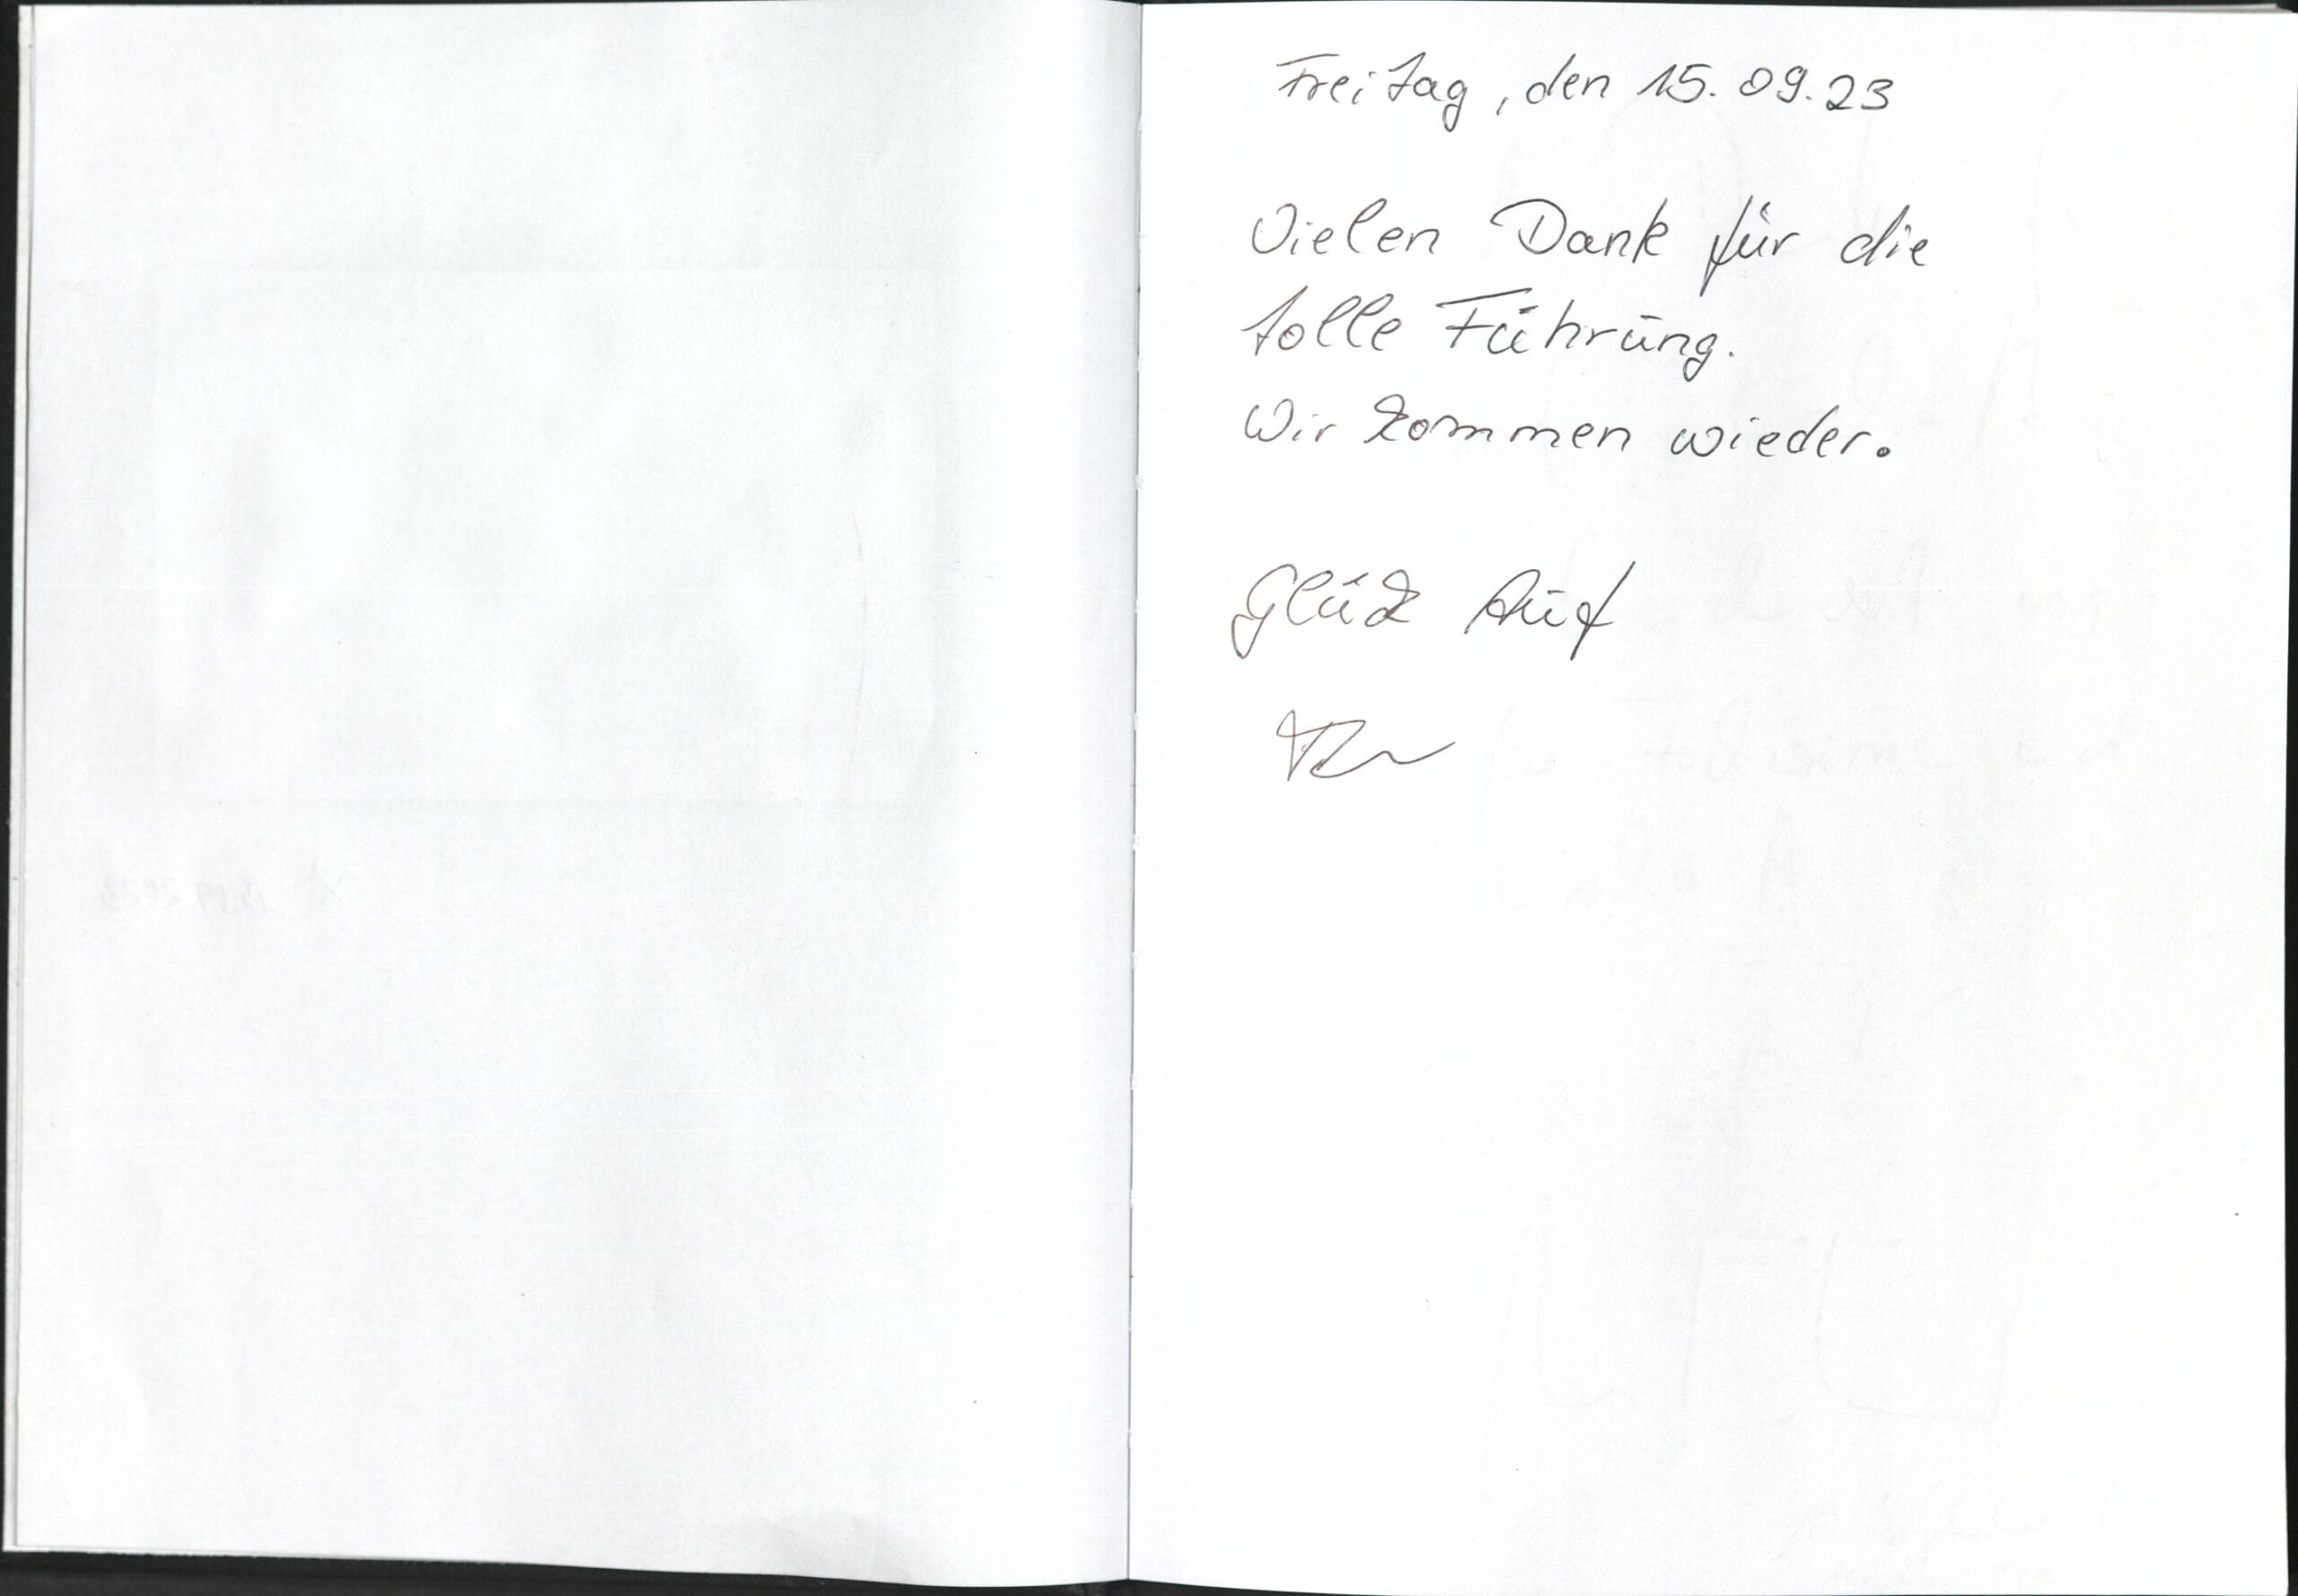 Freitag, den 15.09.23
Vielen Dank für die
tolle Führung.
Wir kommen wieder.
Glück Auf